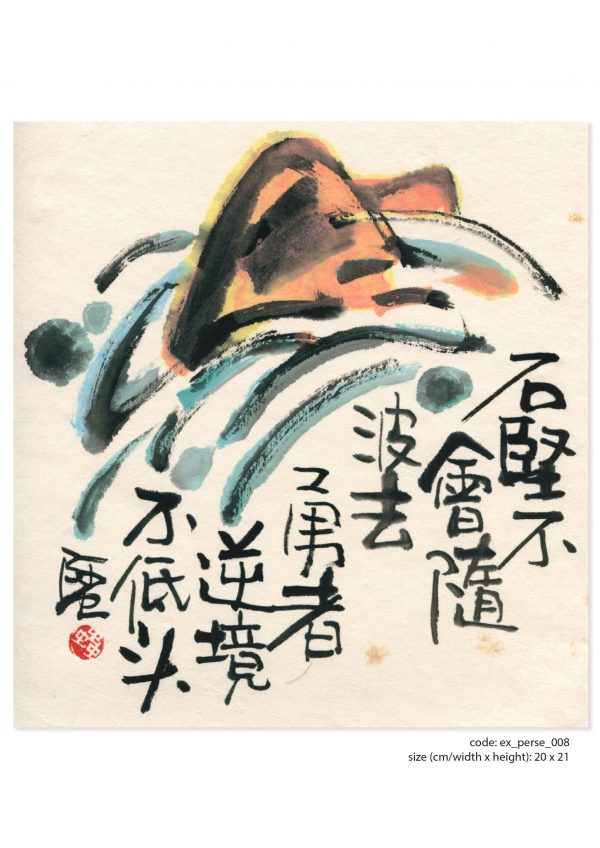 石堅不
會隨
波去
勇者
逆境
不低头
code: ex_perse_008
size (cm/width x height): 20 x 21